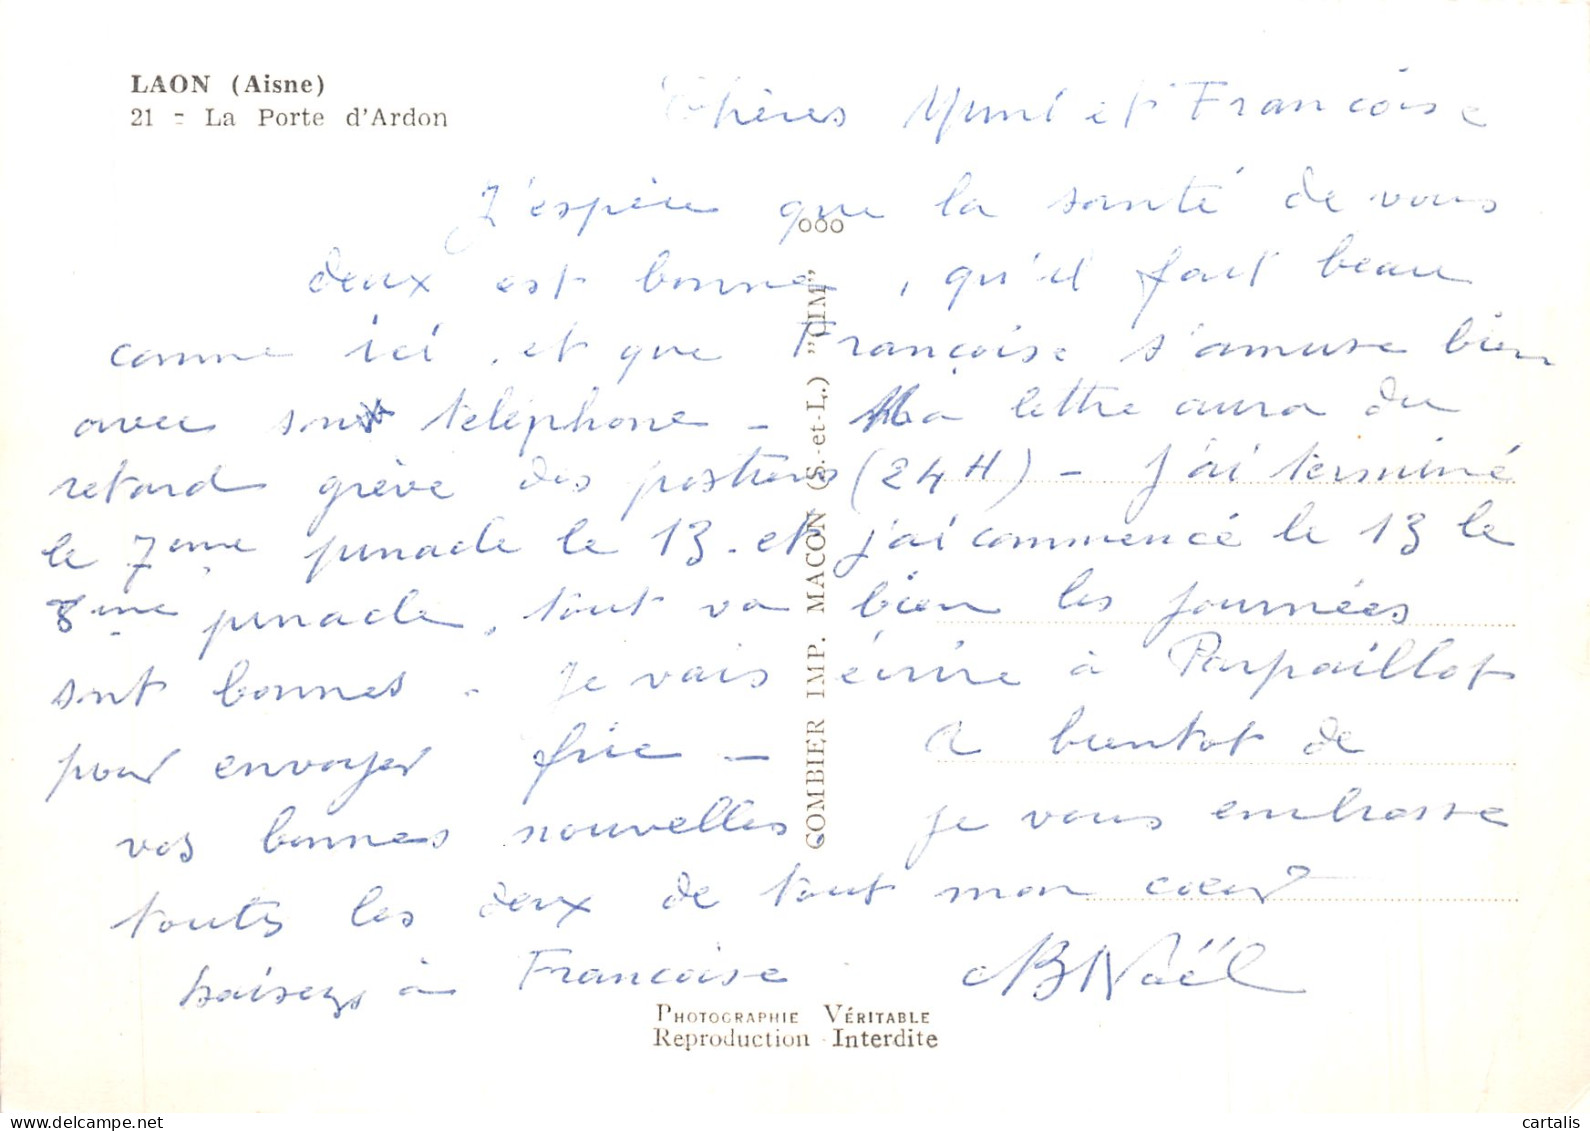 LAON (Aisne)
21 - La Porte d'Ardon
Chères Mimi et Francoise
J'espère que la santé de vous
deux est bonne, qu'il fait beau
comme ici, et que Françoise s'amuse bien
avec son téléphone - Ma lettre aura du
retard grève des postiers (24H) - J'ai terminé
le 7eme pinacle le 13. et j'ai commencé le 13 le
8eme pinacle, tout va bien les journées
sont bonnes. Je vais écrire à Parpaillot
pour envoyer fric - A bientot de
vos bonnes nouvelles je vous embrasse
toutes les deux de tout mon coeur
baisers à Francoise Noël
ooo
COMBIER IMP. MACON (S.-et-L.) "CIM"
PHOTOGRAPHIE VÉRITABLE
Reproduction Interdite
cartalis
delcampe.net